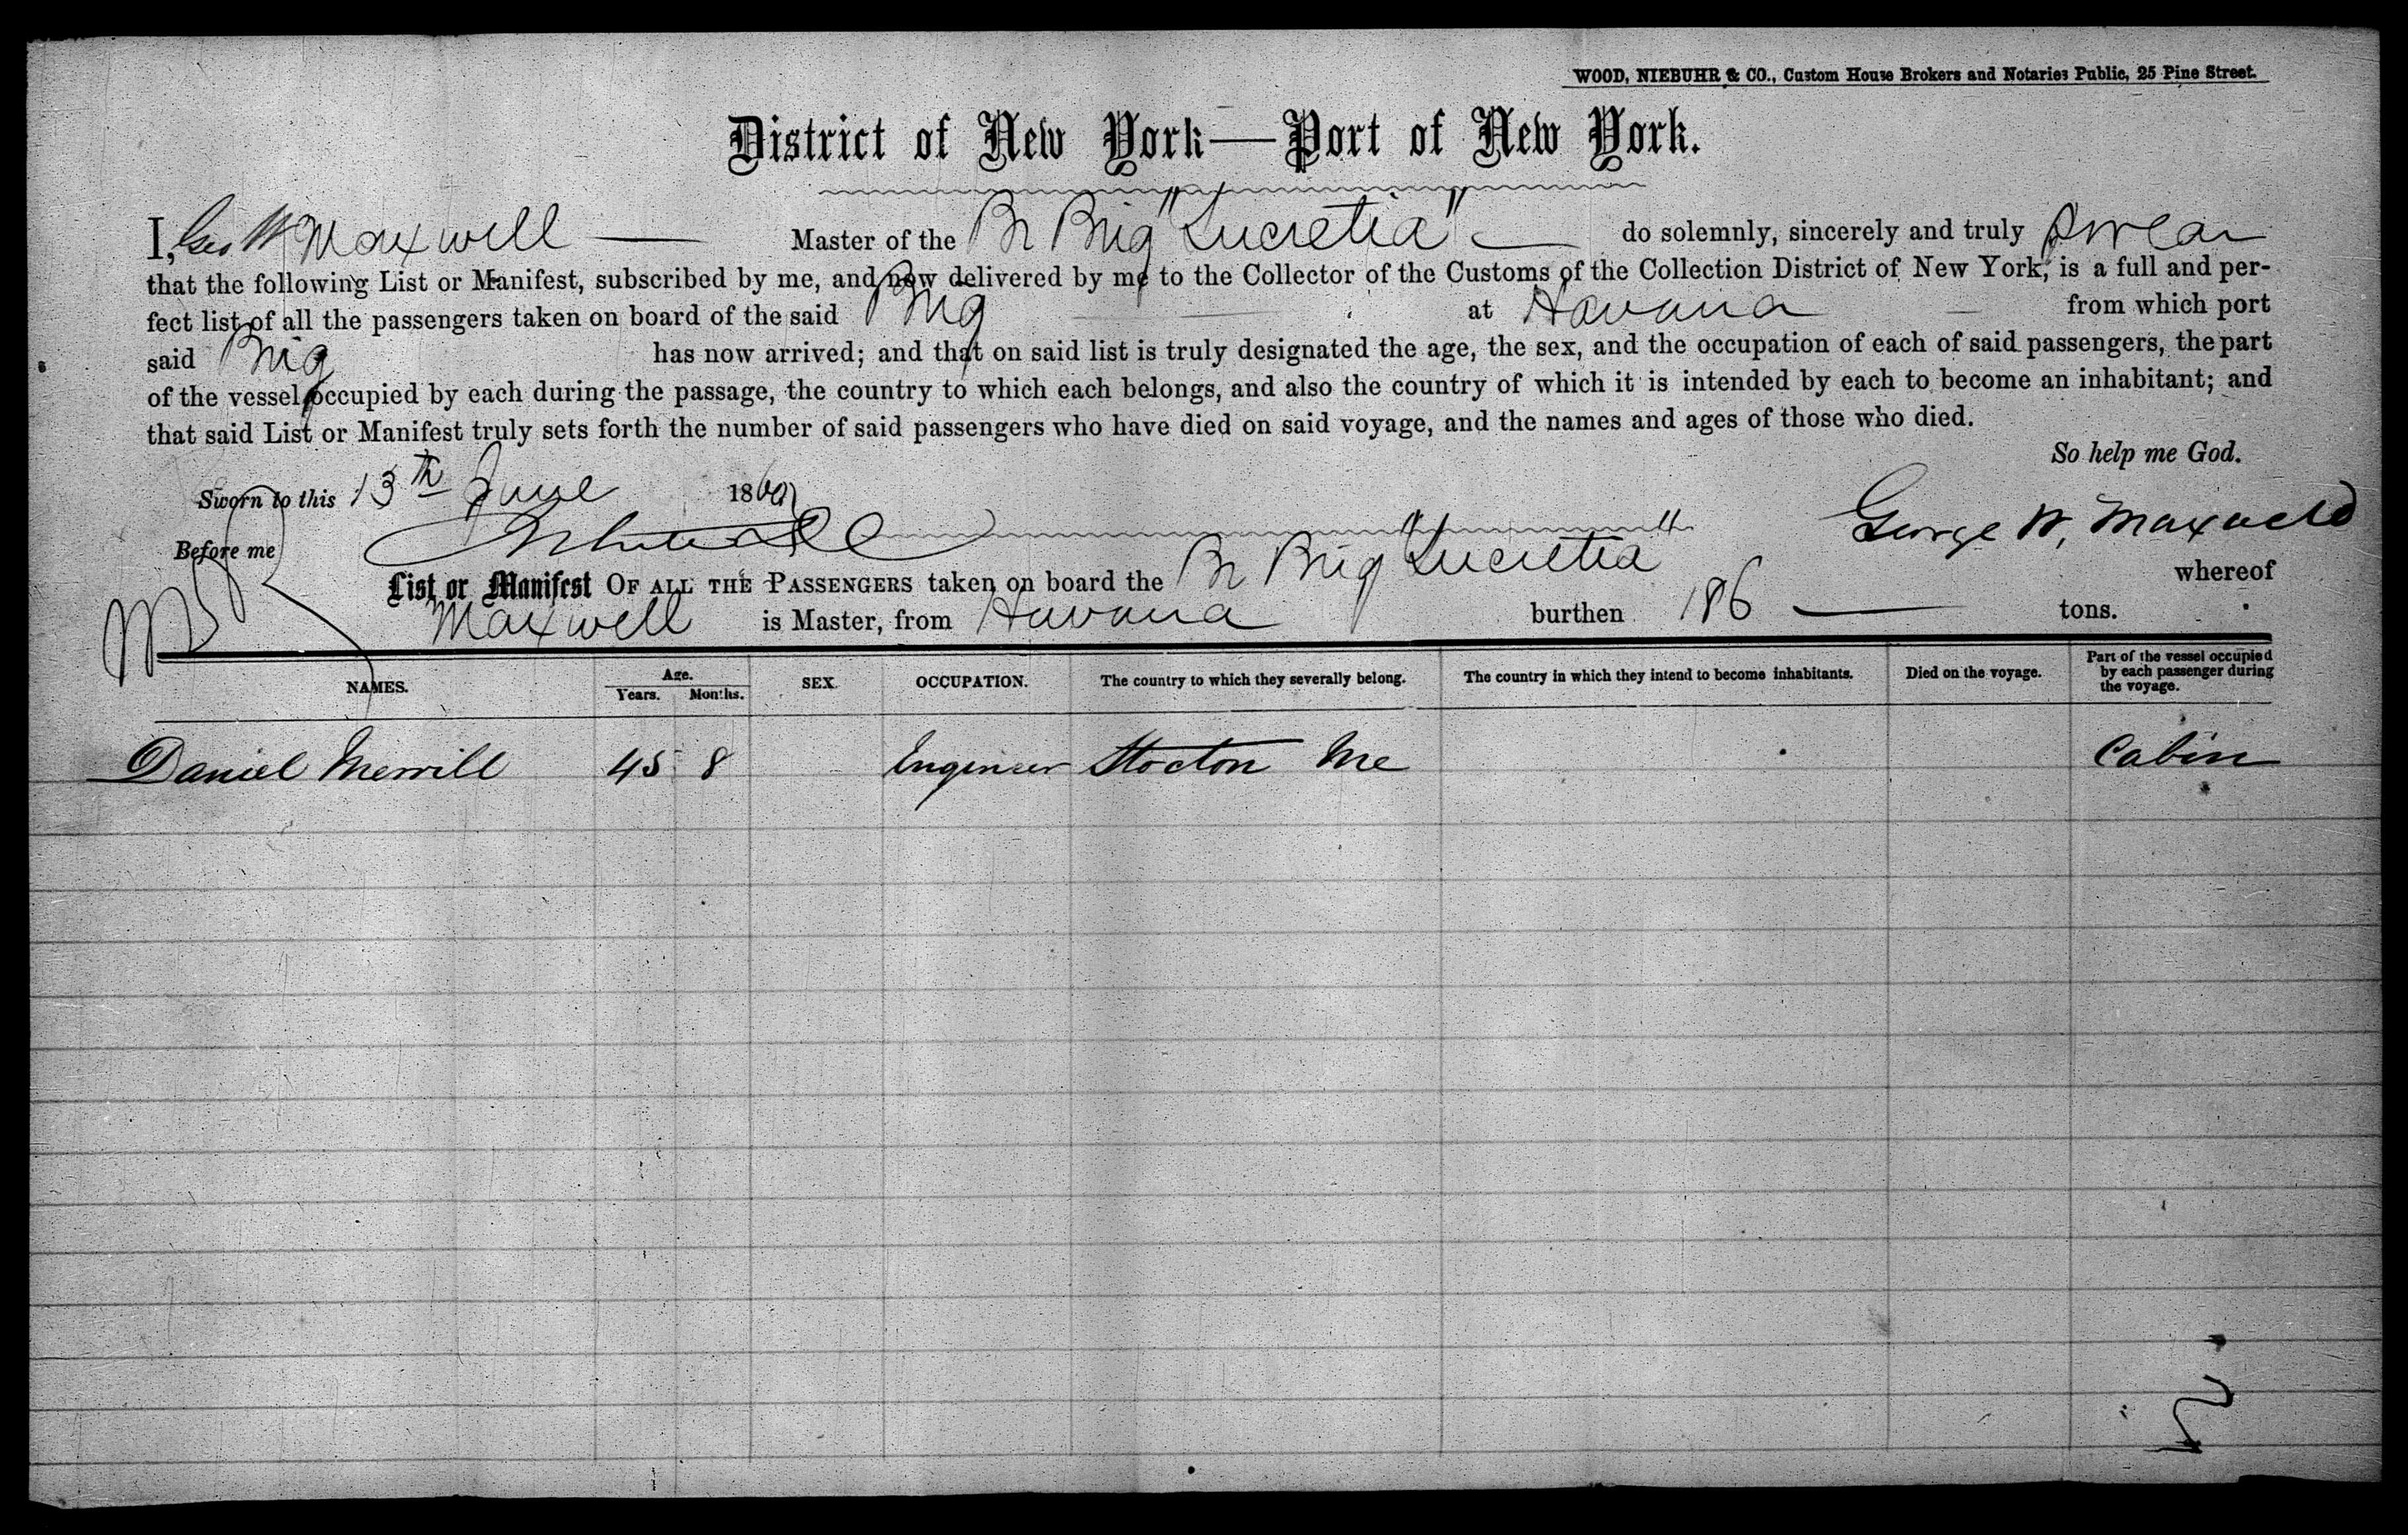 WOOD, NIEBUHR & CO., Custom House Brokers and Notaries Public, 25 Pine Street.
District of New York—Port of New York.
I, Geo W Maxwell — Master of the Br Brig "Lucretia" — do solemnly, sincerely and truly swear
that the following List or Manifest, subscribed by me, and now delivered by me to the Collector of the Customs of the Collection District of New York, is a full and per-
fect list of all the passengers taken on board of the said Brig at Havana from which port
said Brig has now arrived; and that on said list is truly designated the age, the sex, and the occupation of each of said passengers, the part
of the vessel occupied by each during the passage, the country to which each belongs, and also the country of which it is intended by each to become an inhabitant; and
that said List or Manifest truly sets forth the number of said passengers who have died on said voyage, and the names and ages of those who died.
So help me God.
Sworn to this 13th June 1869
George W, Maxwell
Before me
List or Manifest OF ALL THE PASSENGERS taken on board the Br Brig "Lucretia" whereof
Maxwell is Master, from Havana burthen 186 — tons.
NAMES. Age. Years. Months. SEX. OCCUPATION. The country to which they severally belong. The country in which they intend to become inhabitants. Died on the voyage. Part of the vessel occupied by each passenger during the voyage.
Daniel Merrill 45 8 Engineer Stocton Me Cabin